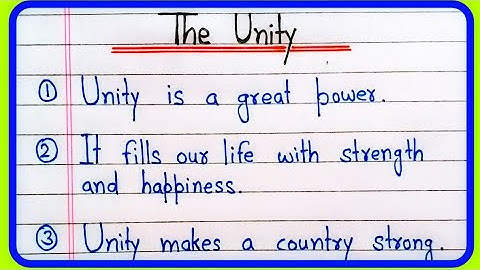 The Unity
① Unity is a great power.
② It fills our life with strength
and happiness.
③ Unity makes a country strong.